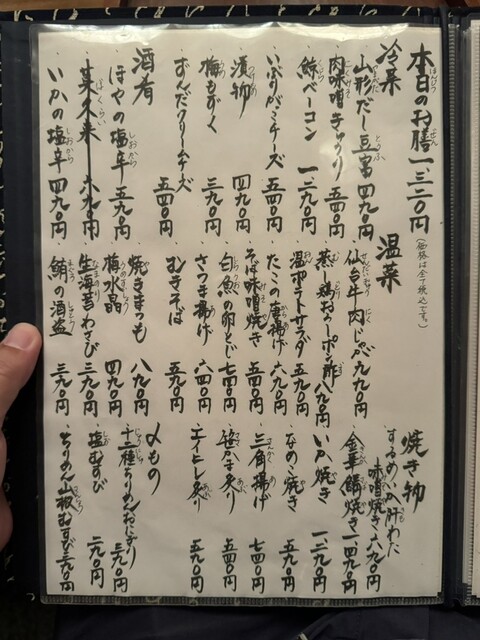 本日のお膳 一、三二〇円
(価格は全て税込です。)
冷菜
山形だし豆富 四九〇円
肉味噌きゅうり 五四〇円
鯨ベーコン 一、三九〇円
いぶりがっこチーズ 五四〇円
漬物 四九〇円
梅もずく 三九〇円
ずんだクリームチーズ 五四〇円
酒肴
ほやの塩辛 五九〇円
莫久来 六九〇円
いかの塩辛 四九〇円
温菜
仙台牛肉じゃが 九九〇円
蒸し鶏おろしポン酢 八九〇円
温ポテトサラダ 五九〇円
たこの唐揚げ 六九〇円
そば味噌焼き 五四〇円
白魚の卵とじ 七四〇円
さつま揚げ 六四〇円
むきそば 五九〇円
焼きまつも 八九〇円
梅水晶 四九〇円
生海苔わさび 三九〇円
鮪の酒盗 三九〇円
焼き物
するめいか肝わた
味噌焼き 六九〇円
金華鯖焼き 一、四九〇円
いか焼き 一、三九〇円
なめこ焼き 五九〇円
三角揚げ 七四〇円
笹かま炙り 五四〇円
エイヒレ炙り 五九〇円
〆もの
十二種ちりめんおにぎり 三九〇円
塩むすび 二九〇円
ちりめん山椒むすび 三九〇円